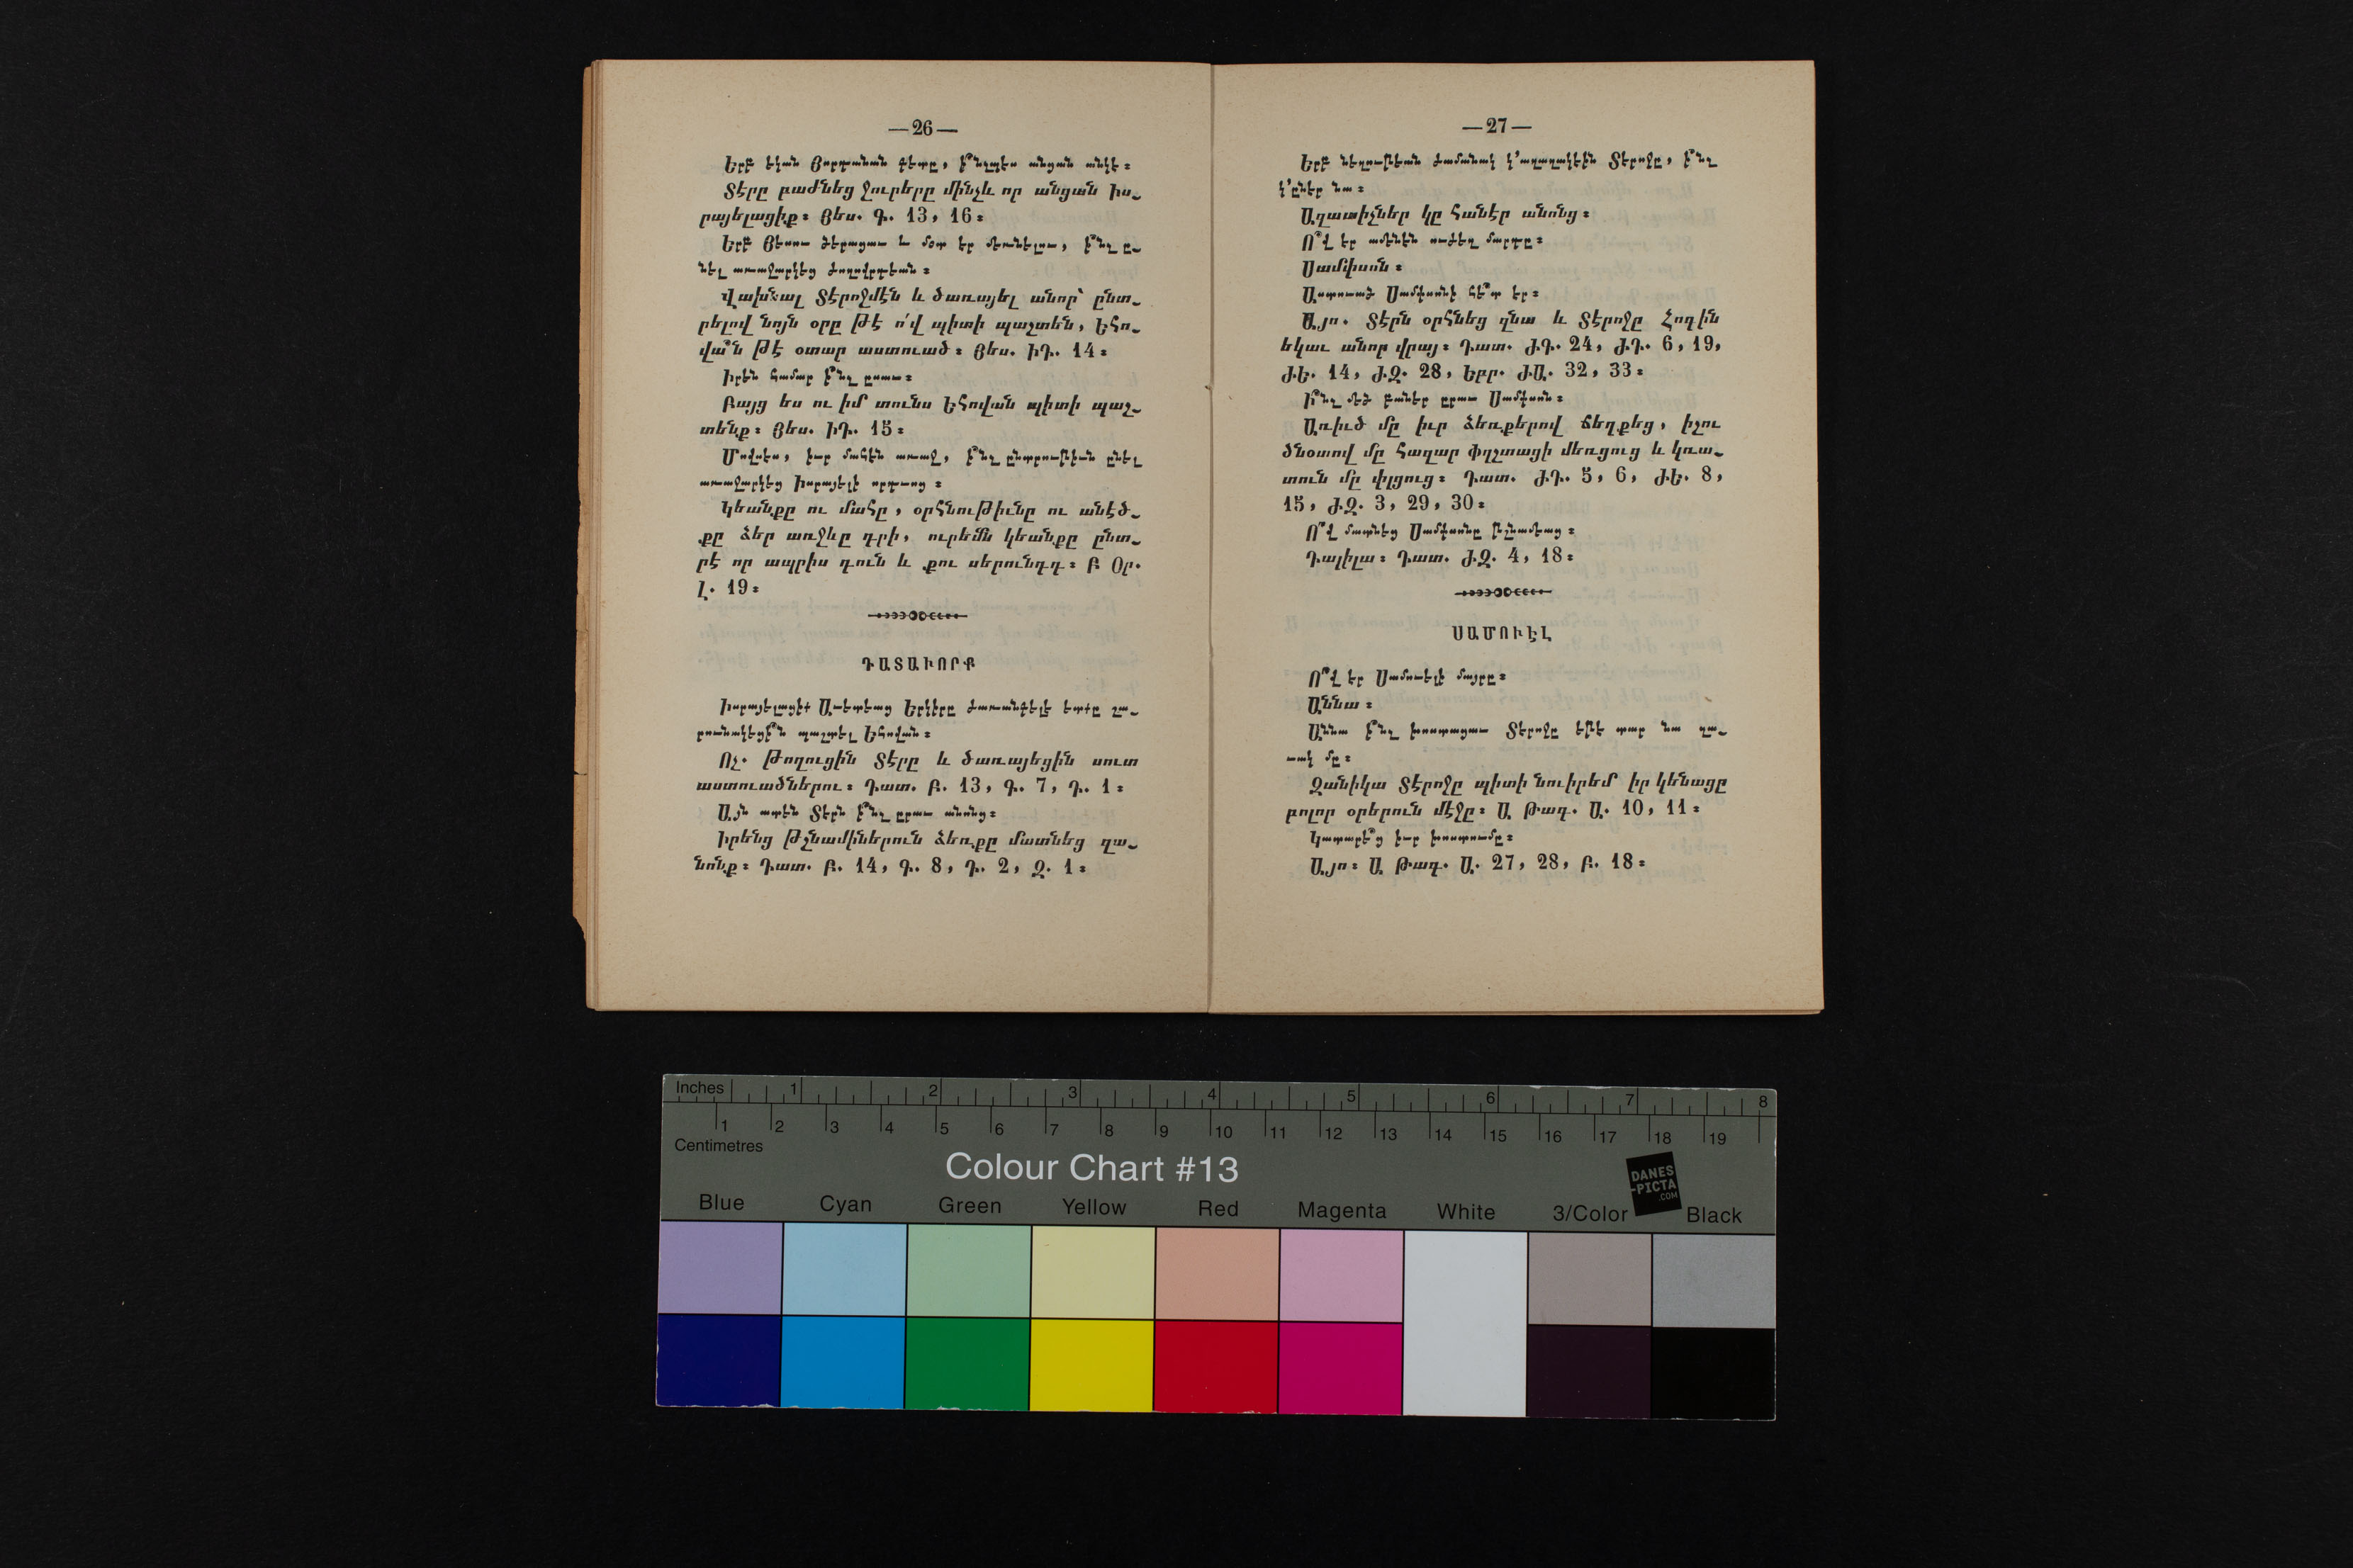 —26—
Երբ եկան Յորդանան գետը, ի՞նչպես անցան անկե։
Տէրը բաժնեց ջուրերը մինչև որ անցան Իս-
րայելացիք։ Յես. Գ. 13, 16։
Երբ Յեսու ծերացաւ և մօտ եր մեռնելու, ի՞նչ ը-
նել առաջարկեց ժողովրդեան։
Վախնալ Տէրոջմէն և ծառայել անոր՝ ընտ-
րելով նոյն օրը թէ ո՛վ պիտի պաշտեն, Եհո-
վա՞ն թէ օտար աստուած։ Յես. ԻԴ. 14։
Իրեն համար ի՞նչ ըսաւ։
Բայց ես ու իմ տունս Եհովան պիտի պաշ-
տենք։ Յես. ԻԴ. 15։
Մովսես, իւր մահեն առաջ, ի՞նչ ընտրութիւն ընել
առաջարկեց Իսրայելի որդւոց։
Կեանքը ու մահը, օրհնութիւնը ու անէծ-
քը ձեր առջևը դրի, ուրեմն կեանքը ընտ-
րէ որ ապրիս դուն և քու սերունդդ։ Բ Օր.
Լ. 19։
ԴԱՏԱՒՈՐՔ
Իսրայելացիք Աւետեաց Երկիրը ժառանգելե ետքը շա-
րունակեցի՞ն պաշտել Եհովան։
Ոչ. Թողուցին Տէրը և ծառայեցին սուտ
աստուածներու։ Դատ. Բ. 13, Գ. 7, Դ. 1։
Այն ատեն Տերն ի՞նչ ըրաւ անոնց։
Իրենց թշնամիներուն ձեռքը մատնեց զա-
նոնք։ Դատ. Բ. 14, Գ. 8, Դ. 2, Զ. 1։
—27—
Երբ նեղութեան ժամանակ կ'աղաղակեին Տերոջը, ի՞նչ
կ'ըներ նա։
Ազատիչներ կը հանէր անոնց։
Ո՞վ եր ամենեն ուժեղ մարդը։
Սամփսոն։
Աստուած Սամփսոնի հե՞տ եր։
Այո. Տէրն օրհնեց զնա և Տէրոջը Հոգին
եկաւ անոր վրայ։ Դատ. ԺԳ. 24, ԺԴ. 6, 19,
ԺԵ. 14, ԺԶ. 28, Եբր. ԺԱ. 32, 33։
Ի՞նչ մեծ բաներ ըրաւ Սամփսոն։
Առիւծ մը իւր ձեռքերով ճեղքեց, իշու
ծնօտով մը հազար Փղշտացի մեռցուց և կռա-
տուն մը փլցուց։ Դատ. ԺԴ. 5, 6, ԺԵ. 8,
15, ԺԶ. 3, 29, 30։
Ո՞վ մատնեց Սամփսոնը թշնամեաց։
Դալիլա։ Դատ. ԺԶ. 4, 18։
ՍԱՄՈՒԷԼ
Ո՞վ եր Սամուելի մայրը։
Աննա։
Աննա ի՞նչ խոստացաւ Տերոջը եթե տար նա զա-
ւակ մը։
Զանիկա Տէրոջը պիտի նուիրեմ իր կենացը
բոլոր օրերուն մէջը։ Ա Թագ. Ա. 10, 11։
Կատարե՞ց իւր խոստումը։
Այո։ Ա Թագ. Ա. 27, 28, Բ. 18։
Inches 1 2 3 4 5 6 7 8
1 2 3 4 5 6 7 8 9 10 11 12 13 14 15 16 17 18 19
Centimetres
Colour Chart #13
DANES
-PICTA
.COM
Blue Cyan Green Yellow Red Magenta White 3/Color Black